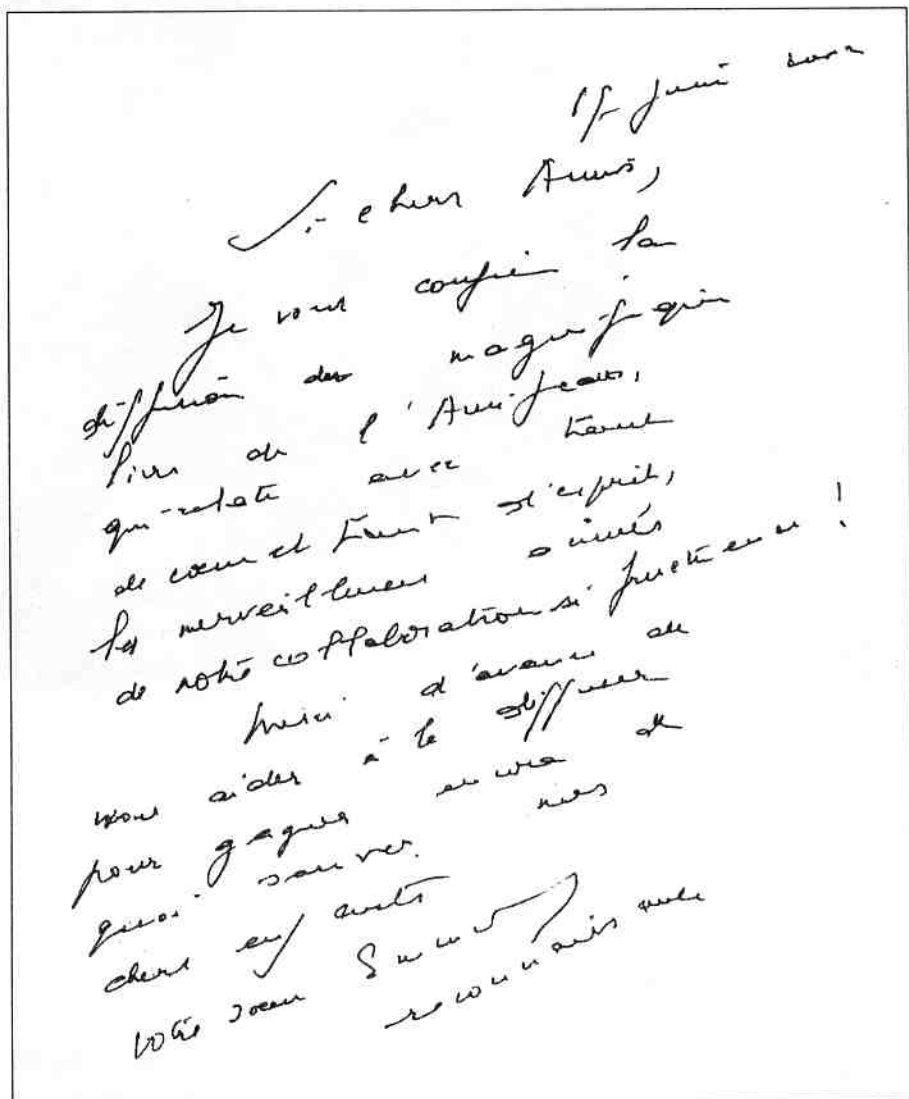 juin 2002
Si chers Amis,
Je vous confie la
diffusion du magnifique
livre de l'Ami Jean,
qui relate avec tant
de coeur et tant d'esprit,
les merveilleuses années
de notre collaboration si fructueuse !
Merci d'avance de
nous aider à le diffuser
pour gagner encore de
quoi sauver nos
chers enfants
votre soeur Emmanuelle
reconnaissante